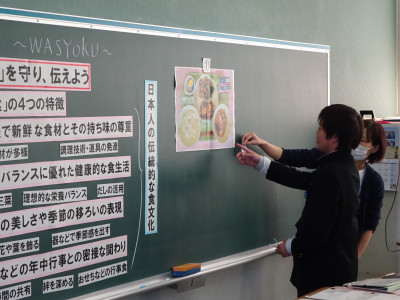 ~WASYOKU~
」を守り、伝えよう
の4つの特徴
で新鮮な食材とその持ち味の尊重
材が多様 調理技術・道具の発達
バランスに優れた健康的な食生活
三菜 理想的な栄養バランス だしの活用
の美しさや季節の移ろいの表現
花や葉を飾る 器などで季節感を出す
などの年中行事との密接な関わり
間の共有 絆を深める おせちなどの行事食
日本人の伝統的な食文化